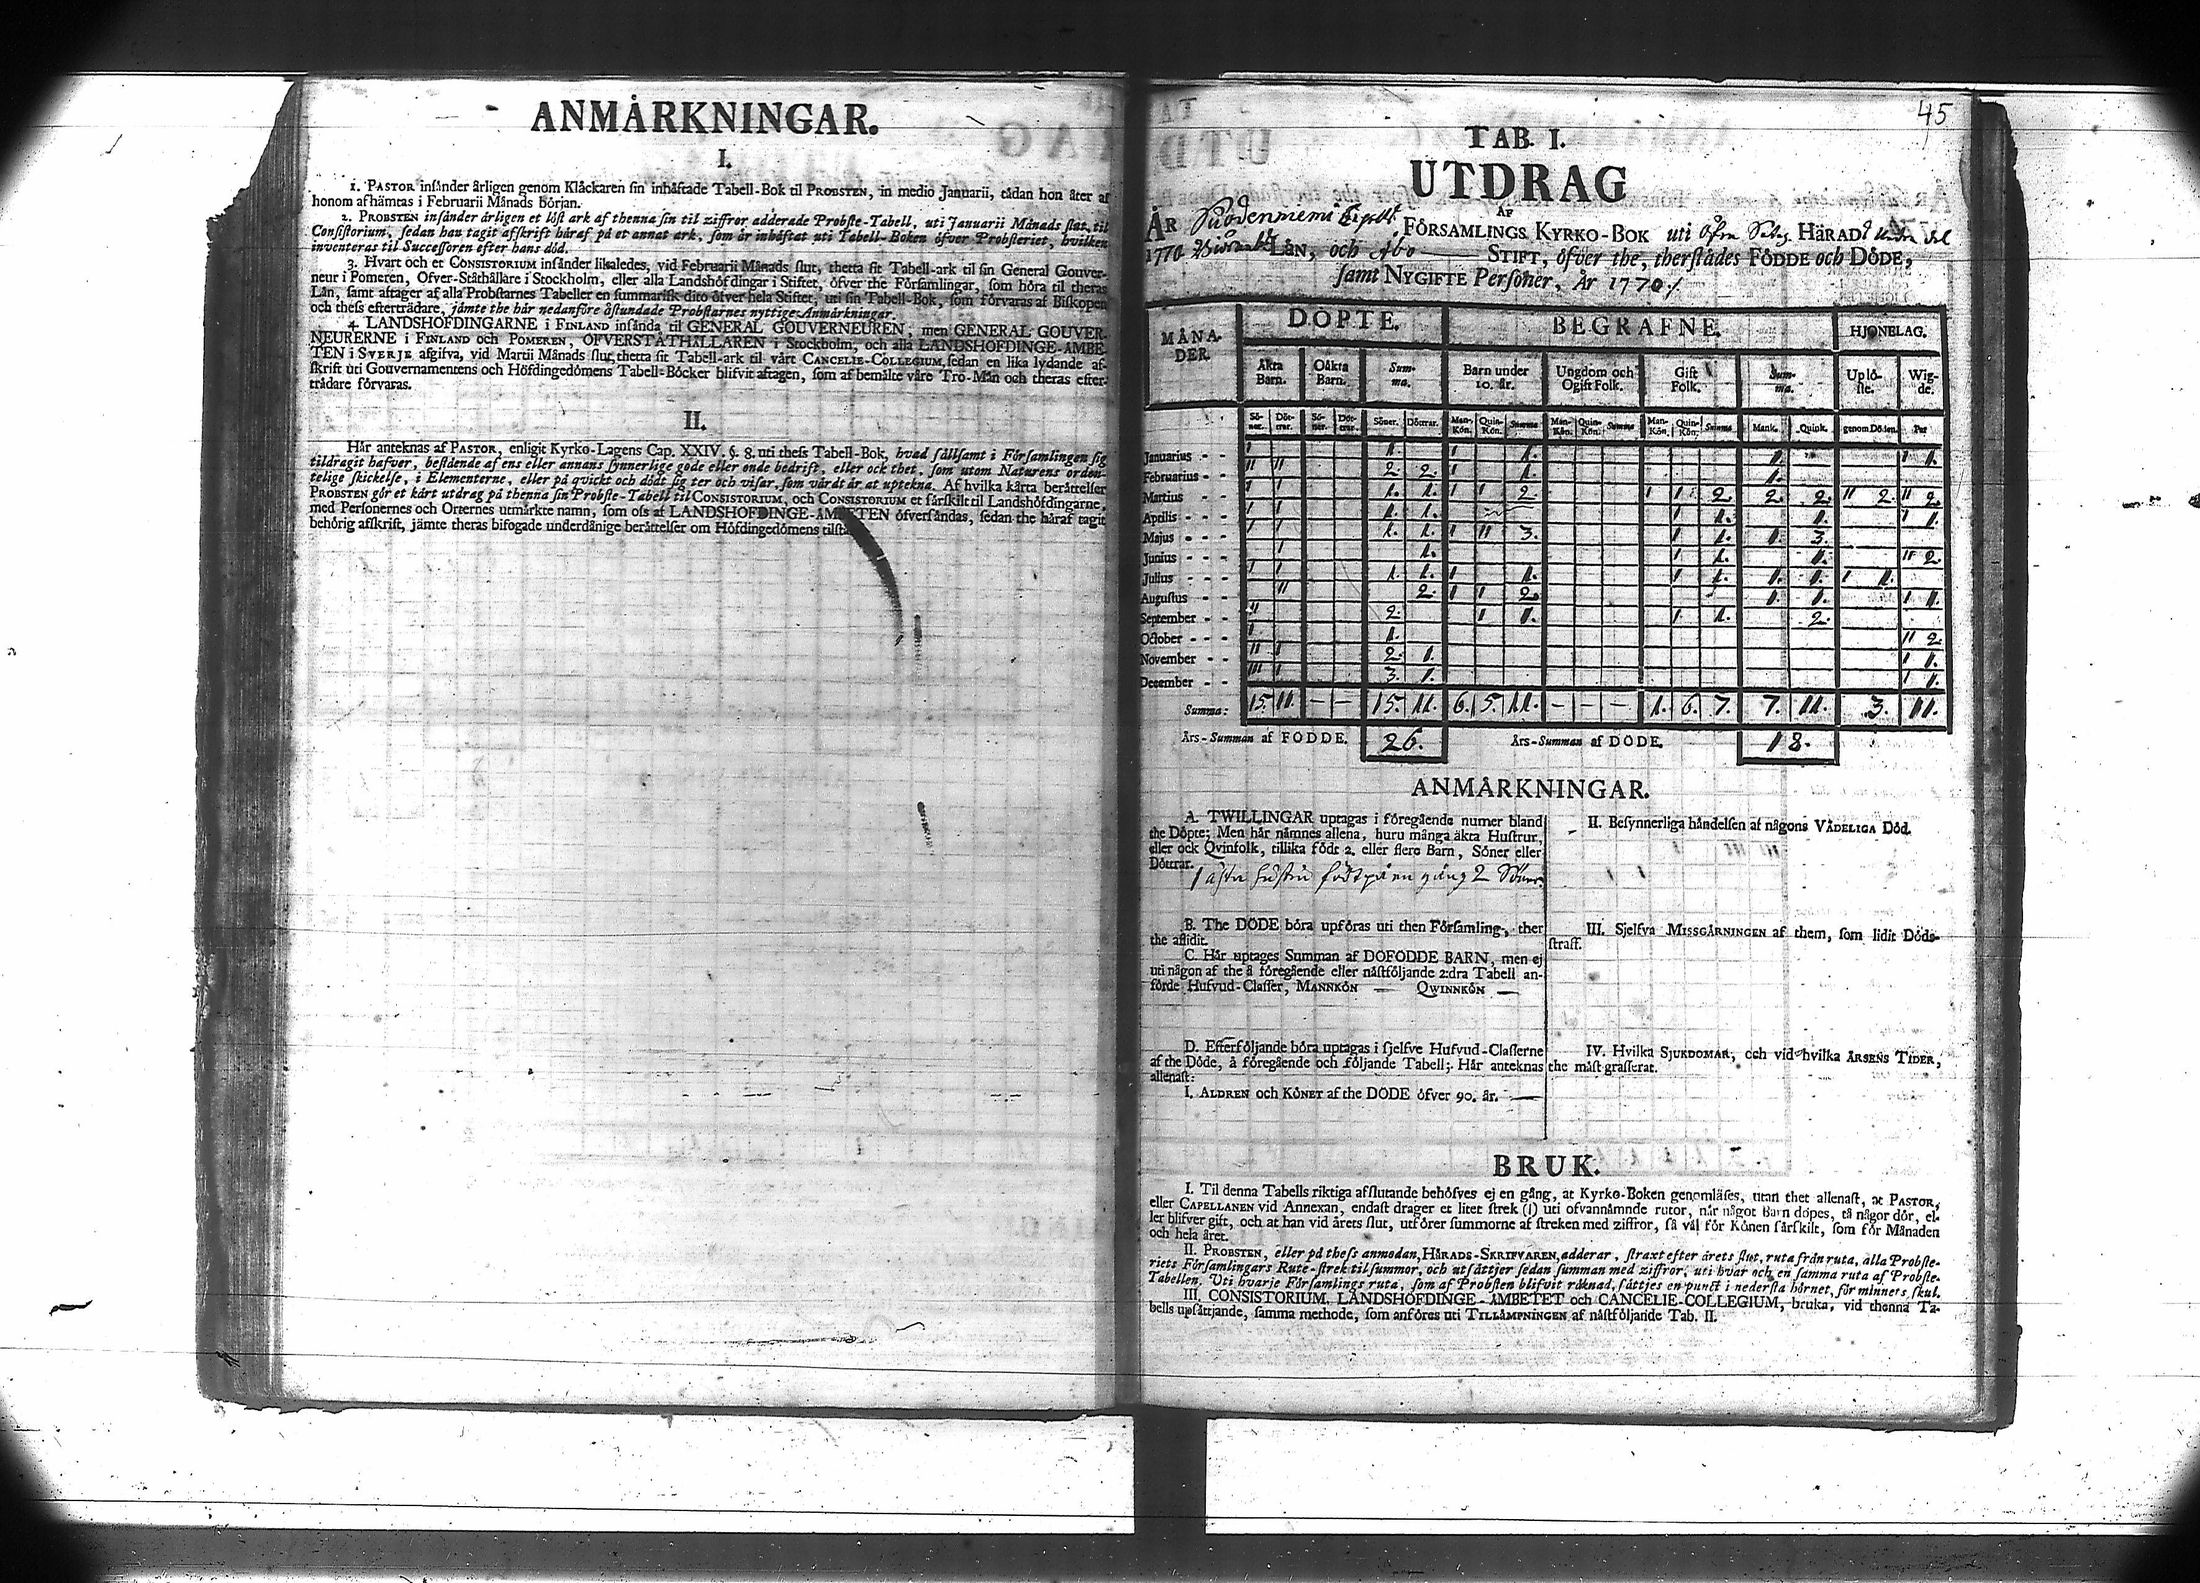 ANMÅRKNINGAR.
I.
1. PASTOR insånder årligen genom Klåckaren sin inhåftade Tabell-Bok til PROBSTEN, in medio Januarii, tådan hon åter af
honom afhämtas i Februarii Månads början.
2. PROBSTEN insånder årligen et löst ark af thenna sin til ziffror adderade Probste-Tabell, uti Januarii Månads slut, til
Consistorium, sedan han tagit afskrift håraf på et annat ark, som år inhåftat uti Tabell-Boken öfver Probsteriet, hvilken
inventeras til Successoren efter hans död.
3. Hvart och et CONSISTORIUM insånder likaledes, vid Februarii Månads slut, thetta sit Tabell-ark til sin General Gouver-
neur i Pomeren, Ofver-Ståthållare i Stockholm, eller alla Landshöfdingar i Stiftet, öfver the Församlingar, som höra til theras
Lån, samt aftager af alla Probstarnes Tabeller en summarisk dito öfver hela Stiftet, uti sin Tabell-Bok, som förvaras af Biskopen
och thess efterträdare, jämte the hår nedanföre åstundade Probstarnes nyttige Anmårkningar.
4. LANDSHÖFDINGARNE i FINLAND insånda til GENERAL GOUVERNEUREN, men GENERAL GOUVER-
NEURERNE i FINLAND och POMEREN, OFVERSTÅTHÅLLAREN i Stockholm, och alla LANDSHÖFDINGE-ÅMBE-
TEN i SVERJE afgifva, vid Martii Månads slut, thetta sit Tabell-ark til vårt CANCELIE-COLLEGIUM, sedan en lika lydande af-
skrift uti Gouvernamentens och Höfdingedömens Tabell-Böcker blifvit aftagen, som af bemälte våre Tro-Mån och theras efter-
trädare förvaras.
II.
Hår anteknas af PASTOR, enligit Kyrko-Lagens Cap. XXIV. §. 8. uti thess Tabell-Bok, hvad sållsamt i Församlingen sig
tildragit hafver, bestående af ens eller annans synnerlige gode eller onde bedrift, eller ock thet, som utom Naturens orden-
telige skickelse, i Elementerne, eller på qvickt och dödt sig ter och visar, som värdt är at uptekna. Af hvilka kårta beråttelser
PROBSTEN gör et kårt utdrag på thenna sin Probste-Tabell til CONSISTORIUM, och CONSISTORIUM et sårskilt til Landshöfdingarne,
med Personernes och Orternes utmårkte namn, som oss af LANDSHÖFDINGE-ÅMBETEN öfversåndas, sedan the håraf tagit
behörig afskrift, jämte theras bifogade underdånige beråttelser om Höfdingedömens
45
TAB. I.
UTDRAG
AF
ÅR FÖRSAMLINGS KYRKO-BOK uti HÄRAD
1770 LÅN, och Åbo STIFT, öfver the, therstådes FÖDDE och DÖDE,
samt NYGIFTE Personer, År 1770.
MÅNADER. DÖPTE. BEGRAFNE. HJONELAG.
Åkta Barn. Oåkta Barn. Summa. Barn under 10. år. Ungdom och Ogift Folk. Gift Folk. Summa. Uplöste. Wigde.
Söner. Döttrar. Söner. Döttrar. Söner. Döttrar. Man-Kön. Quin-Kön. Summa Man-Kön. Quin-Kön. Summa Man-Kön. Quin-Kön. Summa Mank. Quink. genom Döden. Par
Januarius - - I 1. I 1. 1. I 1.
Februarius - II II 2. 2. I 1. 1.
Martius - - I I 1. 1. I I 2 I I 2 2. 2. II 2. II 2.
Aprilis - - - I I 1. 1. I 1. 1. I 1.
Majus - - - I I 1. 1. I II 3. I 1. 1. 3.
Junius - - - I 1. I 1. 1. II 2.
Julius - - - I I 1. 1. I 1. I 1. 1. 1. I 1.
Augustus - - II 2. I I 2. 1. 1. I 1.
September - - II 2. I 1. I 1. 2.
October - - - I 1. II 2.
November - - II I 2. 1. I 1.
December - - III I 3. 1. I 1.
Summa: 15. 11. — — 15. 11. 6. 5. 11. — — — 1. 6. 7. 7. 11. 3. 11.
Års-Summan af FÖDDE. 26. Års-Summan af DÖDE. 18.
ANMÅRKNINGAR.
A. TWILLINGAR uptagas i föregående numer bland
the Döpte; Men hår nåmnes allena, huru många åkta Hustrur,
eller ock Qvinfolk, tillika födt 2. eller flere Barn, Söner eller
Döttrar.
1 åkta hustru födt på en gång 2 Söner.
B. The DÖDE böra upföras uti then Församling, ther
the aflidit.
C. Hår uptages Summan af DÖFÖDDE BARN, men ej
uti någon af the å föregående eller nåstföljande 2:dra Tabell an-
förde Hufvud-Classer, MANNKÖN — QWINNKÖN —
D. Efterföljande böra uptagas i sjelfve Hufvud-Classerne
af the Döde, å föregående och följande Tabell; Hår anteknas
allenast:
I. ÅLDREN och KÖNET af the DÖDE öfver 90. år. —
II. Besynnerliga håndelsen af någons VÅDELIGA Död.
III. Sjelfva MISSGÅRNINGEN af them, som lidit Döds-
straff.
IV. Hvilka SJUKDOMAR, och vid hvilka ÅRSENS TIDER,
the måst grasserat.
BRUK.
I. Til denna Tabells riktiga afslutande behöfves ej en gång, at Kyrko-Boken genomläses, utan thet allenast, at PASTOR,
eller CAPELLANEN vid Annexan, endast drager et litet strek (I) uti ofvannåmnde rutor, når något Barn döpes, tå någor dör, el-
ler blifver gift, och at han vid årets slut, utförer summorne af streken med ziffror, så väl för Könen sårskilt, som för Månaden
och hela året.
II. PROBSTEN, eller på thess anmodan, HÅRADS-SKRIFVAREN, adderar, straxt efter årets slut, ruta från ruta, alla Probste-
riets Församlingars Rute-strek til summor, och utsåttjer sedan summan med ziffror, uti hvar och en samma ruta af Probste-
Tabellen. Uti hvarje Församlings ruta, som af Probsten blifvit råknad, såttjes en punct i nedersta hörnet, för minnets skul.
III. CONSISTORIUM, LANDSHÖFDINGE-ÅMBETET och CANCELIE-COLLEGIUM, bruka, vid thenna Ta-
bells upsåttjande, samma methode, som anföres uti TILLÅMPNINGEN af nåstföljande Tab. II.